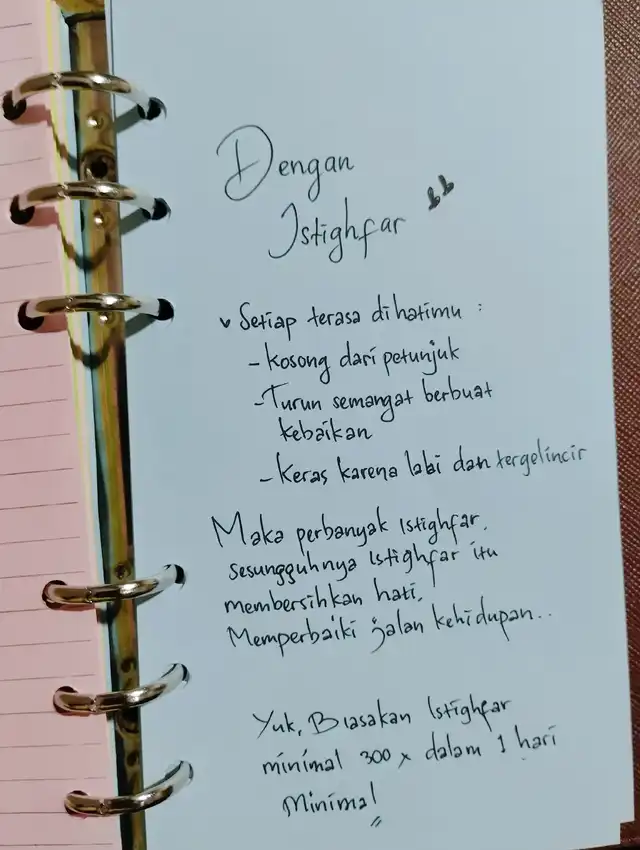 Dengan
Istighfar "
Setiap terasa dihatimu :
- Kosong dari petunjuk
- Turun semangat berbuat
kebaikan
- Keras karena lalai dan tergelincir
Maka perbanyak Istighfar.
sesungguhnya Istighfar itu
membersihkan hati,
Memperbaiki jalan kehidupan..
Yuk, Biasakan Istighfar
minimal 300 x dalam 1 hari
Minimal